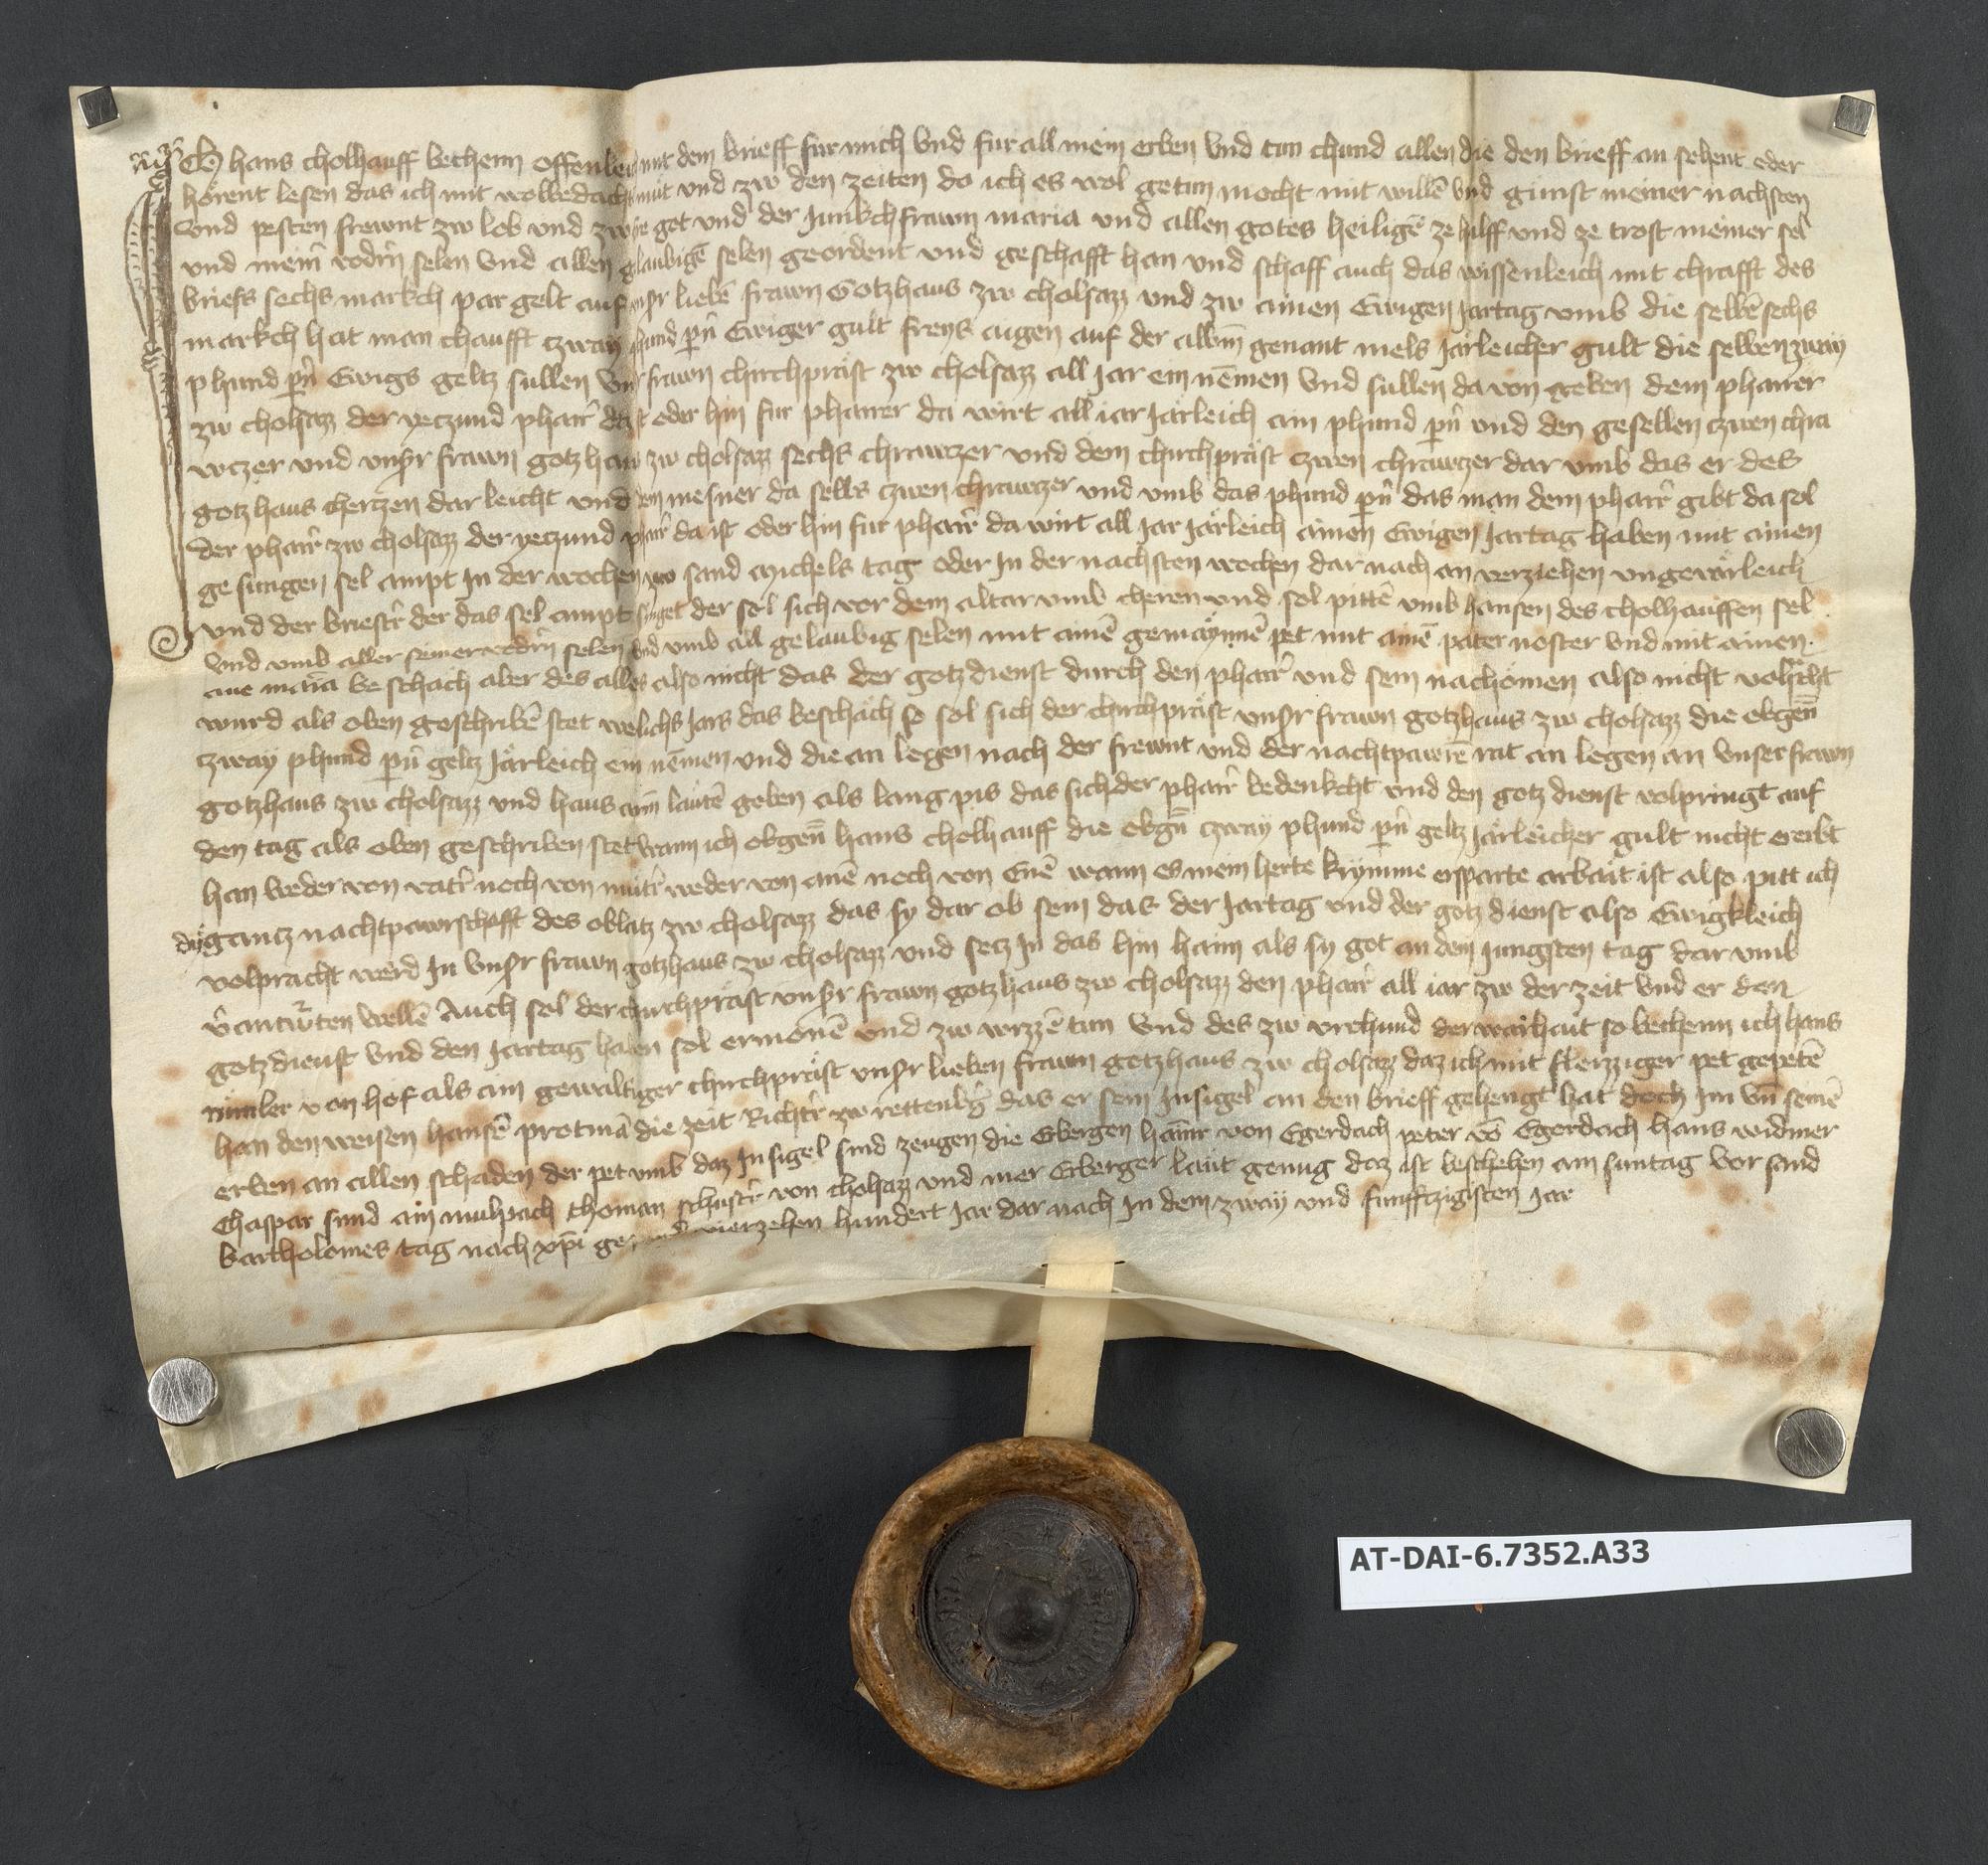 Ich hans cholhauff bechenn offenleich mit dem brieff fur mich vnd fur all mein erben vnd tun chund allen die den brieff an sehent oder
hörent lesen das ich mit wolbedachtm mut vnd zw den zeiten do ich es wol getun mocht mit willē vnd gunst meiner nachsten
vnd pesten frewnt zw lob vnd zw ere got vnd der Junkchfrawn maria vnd allen gotes heiligē ze hilff vnd ze trost meiner sel
vnd meinr vodrn selen vnd allen glaubigē selen geordent vnd geschafft han vnd schaff auch das wissenleich mit chrafft des
briefs sechs markch par gelt auf vnsr liebē frawn Gotzhaus zw cholsazz vnd zw ainen Ewigen Jartag vmb die selbē sechs
markch hat man chaufft czway phund pn̄ Ewiger gult freys aigen auf der albm̄ genant mels Järleicher gult die selben zway
phund pn̄ Ewigs geltz sullen vnsr frawn chirchpräst zw cholsazz all Jar ein nēmen vnd sullen da von geben dem pharrer
zw cholsazz der yeczund pharr da ist oder hin fur pharrer da wirt all iar Järleich ain phund pn̄ vnd den gesellen czwen chra
wczer vnd vnsr frawn gotzhaus zw cholsazz sechs chrawczer vnd dem chirchpräst czwen chrawczer dar vmb das er des
gotzhaus cherczen dar leicht vnd dem mesner da selbs czwen chrawczer vnd vmb das phund pn̄ das man dem pharr gibt da sol
der pharr zw cholsazz der yeczund pharr da ist oder hin fur pharr da wirt all Jar Järleich ainen Ewigen Jartag haben mit ainen
gesungen sel ampt In der wochen vor sand Michels tag oder In der nachsten wochen dar nach an verziehen vngevärleich
vnd der briestr der das sel ampt singet der sol sich vor dem altar vmb cheren vnd sol pittē vmb hansen des cholhauffen sel
vnd vmb aller seiner vodrn selen vnd vmb all gelaubig selen mit ainē gemaynnē pet mit ainē pater noster vnd mit ainen
aue maria beschäch aber des alles also nicht das der gotzdienst durch den pharr vnd sein nachömen also nicht volfürt
wurd als oben geschribē stet welichs Jars das beschäch so sol sich der chirchpräst vnsr frawn gotzhaus zw cholsazz die obgen̄
zway phund pn̄ geltz Järleich ein nēmen vnd die an legen nach der frewnt vnd der nachtpawrē rat an legen an vnser frawn
gotzhaus zw cholsazz vnd haus arm̄ lautē geben als lang pis das sich der pharr bedenkcht vnd den gotzdienst volpringt auf
den tag als oben geschriben stet wann ich obgen̄ hans cholhauff die obgn̄ czway phund pn̄ geltz Järleicher gult nicht ererbt
han weder von vatr noch von mutr weder von anē noch von Enē wann es mein herte krymme ersparte arbait ist also pitt ich
dy gancz nachtpawrschafft des oblatz zw cholsazz das sy dar ob sein das der Jartag vnd der gotzdienst also Ewigkleich
volpracht werd In vnsr frawn gotzhaus zw cholsazz vnd secz In das hin haim als sy got an dem Jungsten tag dar vmb
vantwrten wellē Auch sol der chirchpräst vnsr frawn gotzhaus zw cholsazz den pharr all iar zw der zeit vnd er den
gotzdienst vnd den Jartag haben sol ermonē vnd zw wizzē tun vnd des zw vrchund der warhait so bechenn ich hans
nimler von hof als ain gewaltiger chirchpräst vnsr lieben frawn gotzhaus zw cholsazz daz ich mit fleizziger pet gepetē
han den weisen hansē protmā die zeit Richtr zw rettenbg das er sein Insigel an den brieff gehengt hat doch im vn̄ seinē
erben an allen schaden der pet vmb daz Insigel sind zeugen die Erbergen hainr von Egerdach peter vō Egerdach hans widmer
Chaspar sund ain mulpach thoman schustr von cholsazz vnd mer Erberger läut genug daz ist beschehen am suntag vor sand
bartholomes tag nach xpi̅ gepurd vierzehen hundert Jar dar nach In dem zway vnd funfftzigisten Jar
AT-DAI-6.7352.A33